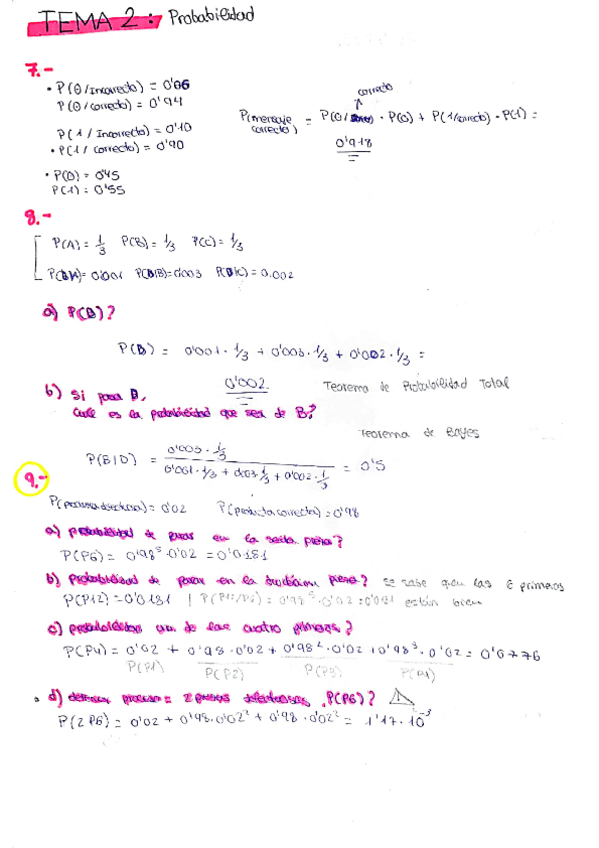 TEMA 2: Probabilidad
7.-
• P(0/Incorrecto) = 0'06
P(0/correcto) = 0'94
P(1/Incorrecto) = 0'10
• P(1/correcto) = 0'90
• P(0) = 0'45
P(1) = 0'55
correcto
P(mensaje correcto) = P(0/ ) · P(0) + P(1/correcto) · P(1) =
0'918
8.-
P(A) = 1/3 P(B) = 1/3 P(C) = 1/3
P(D|A) = 0'001 P(D|B) = 0'003 P(D|C) = 0.002
a) P(D)?
P(D) = 0'001 · 1/3 + 0'003 · 1/3 + 0'002 · 1/3 =
0'002
Teorema de Probabilidad Total
b) Si pasa D,
cuál es la probabilidad que sea de B?
Teorema de Bayes
P(B|D) = 0'003 · 1/3 / 0'001 · 1/3 + 0'003 · 1/3 + 0'002 · 1/3 = 0'5
9.-
= 0'02 P(producto correcto) = 0'98
a) probabilidad de parar en la sexta pieza?
P(P6) = 0'98⁵ · 0'02 = 0'0181
b) probabilidad de parar en la duodécima pieza? se sabe que las 6 primeras
están bien
P(P12) = 0'0181 | = 0'98⁵ · 0'02 =
c) una de las cuatro primeras?
P(P4) = 0'02 + 0'98 · 0'02 + 0'98² · 0'02 + 0'98³ · 0'02 = 0'0776
P(P1) P(P2) P(P3) P(P4)
d) 2 piezas defectuosas, P(P6)?
P(2P6) = 0'02 + 0'98 · 0'02² + 0'98 · 0'02² = 1'17 · 10⁻³